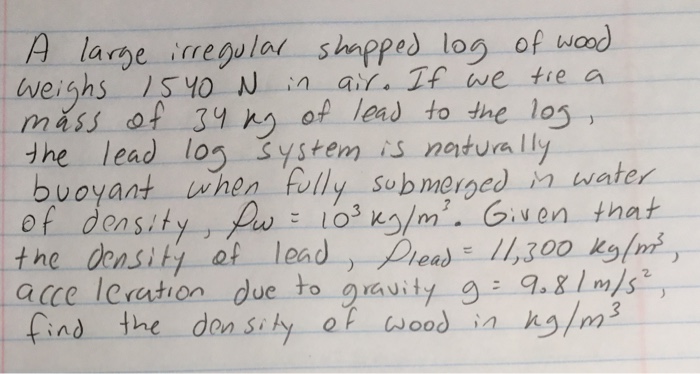 A large irregular shapped log of wood
weighs 1540 N in air. If we tie a
mass of 34 kg of lead to the log,
the lead log system is naturally
buoyant when fully submerged in water
of density, ρw = 10³ kg/m³. Given that
the density of lead, ρlead = 11,300 kg/m³,
acceleration due to gravity g = 9.81 m/s²,
find the density of wood in kg/m³